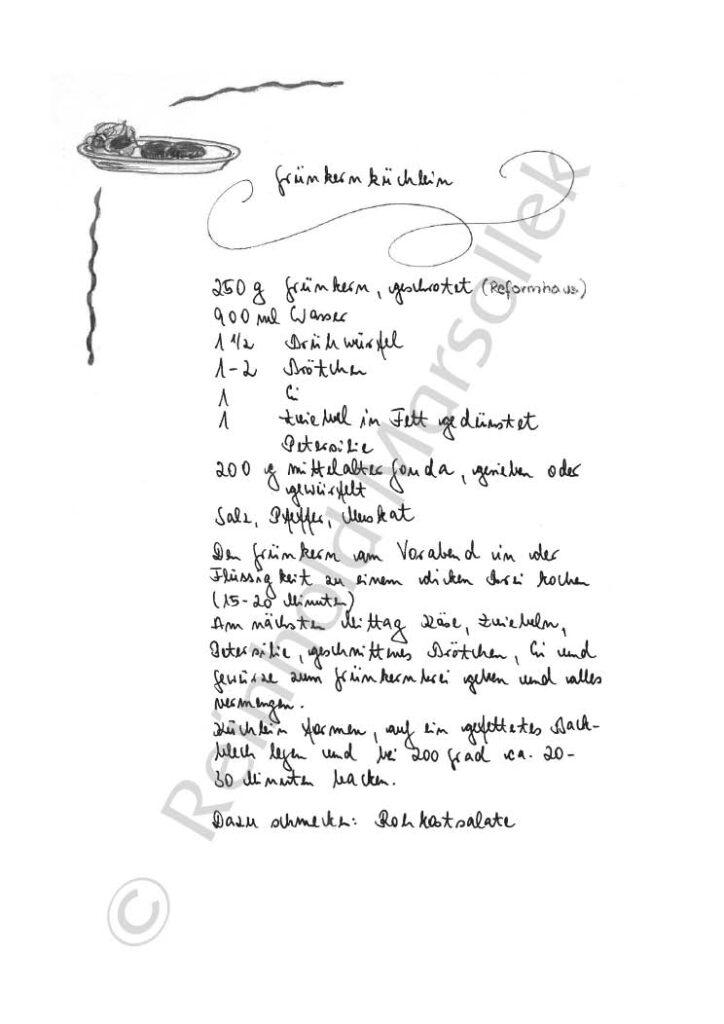 Grünkernküchlein
250 g Grünkern, geschrotet (Reformhaus)
900 ml Wasser
1 1/2 Brühwürfel
1-2 Brötchen
1 Ei
1 Zwiebel in Fett gedünstet
Petersilie
200 g mittelalter Gouda, gerieben oder
gewürfelt
Salz, Pfeffer, Muskat
Den Grünkern am Vorabend in der
Flüssigkeit zu einem dicken Brei kochen
(15-20 Minuten)
Am nächsten Mittag Käse, Zwiebeln,
Petersilie, geschnittenes Brötchen, Ei und
Gewürze zum Grünkernbrei geben und alles
vermengen.
Küchlein formen, auf ein gefettetes Back-
blech legen und bei 200 Grad ca. 20-
30 Minuten backen.
Dazu schmecken: Rohkostsalate
© Reinhold Marsollek